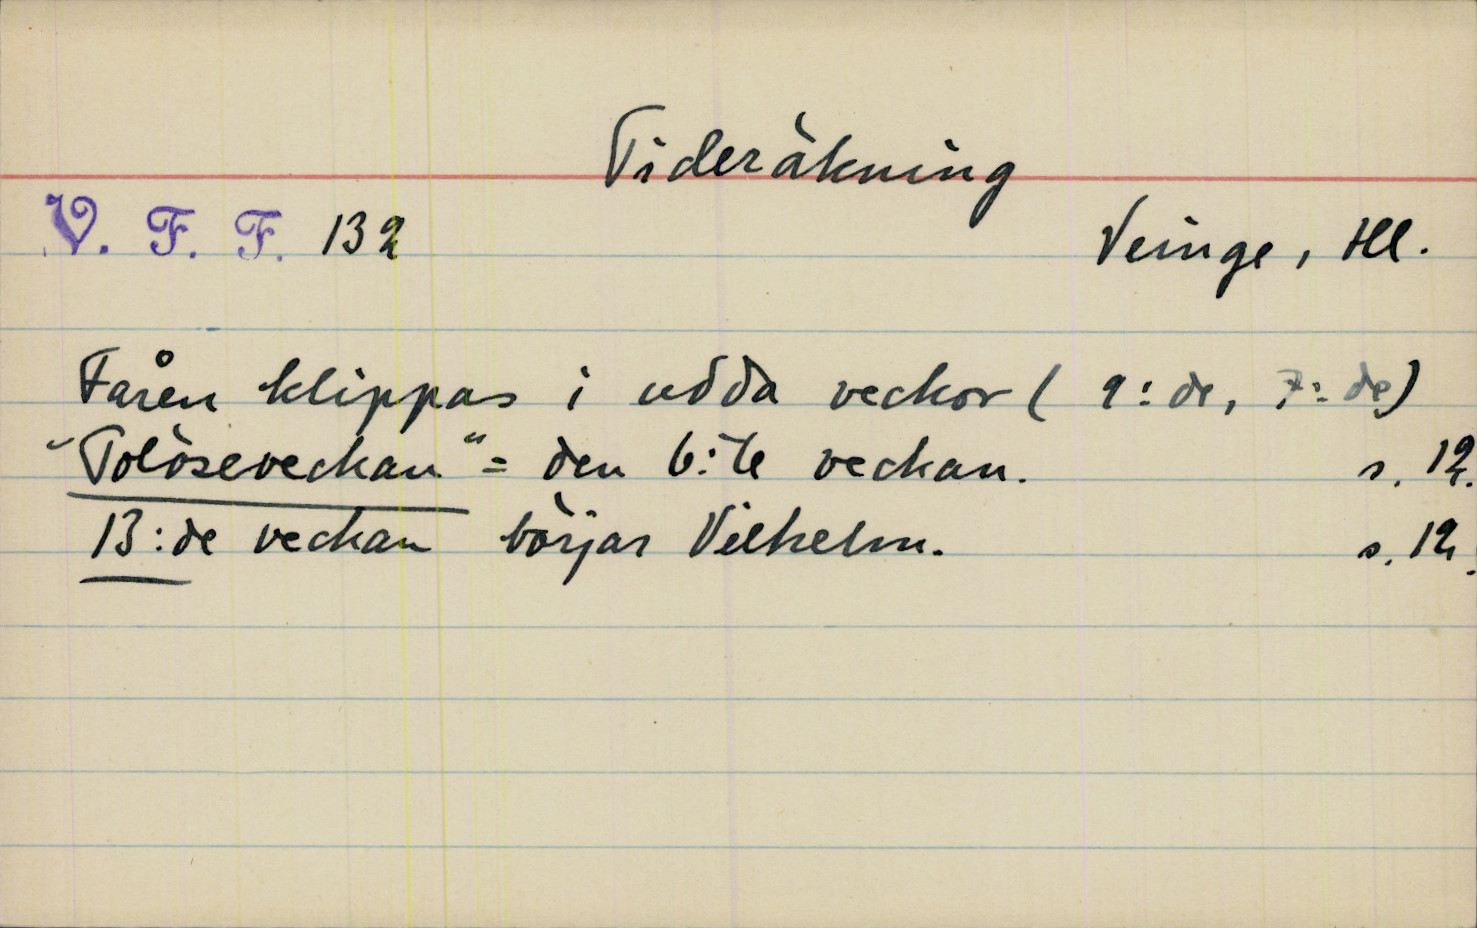 Tideräkning
V. F. F. 132
Veinge, Hll.
Fåren klippas i udda veckor ( 9:de, 7:de)
"Tolöseveckan" = den 6:te veckan. s. 12.
13:de veckan börjar Vilhelm. s. 12.